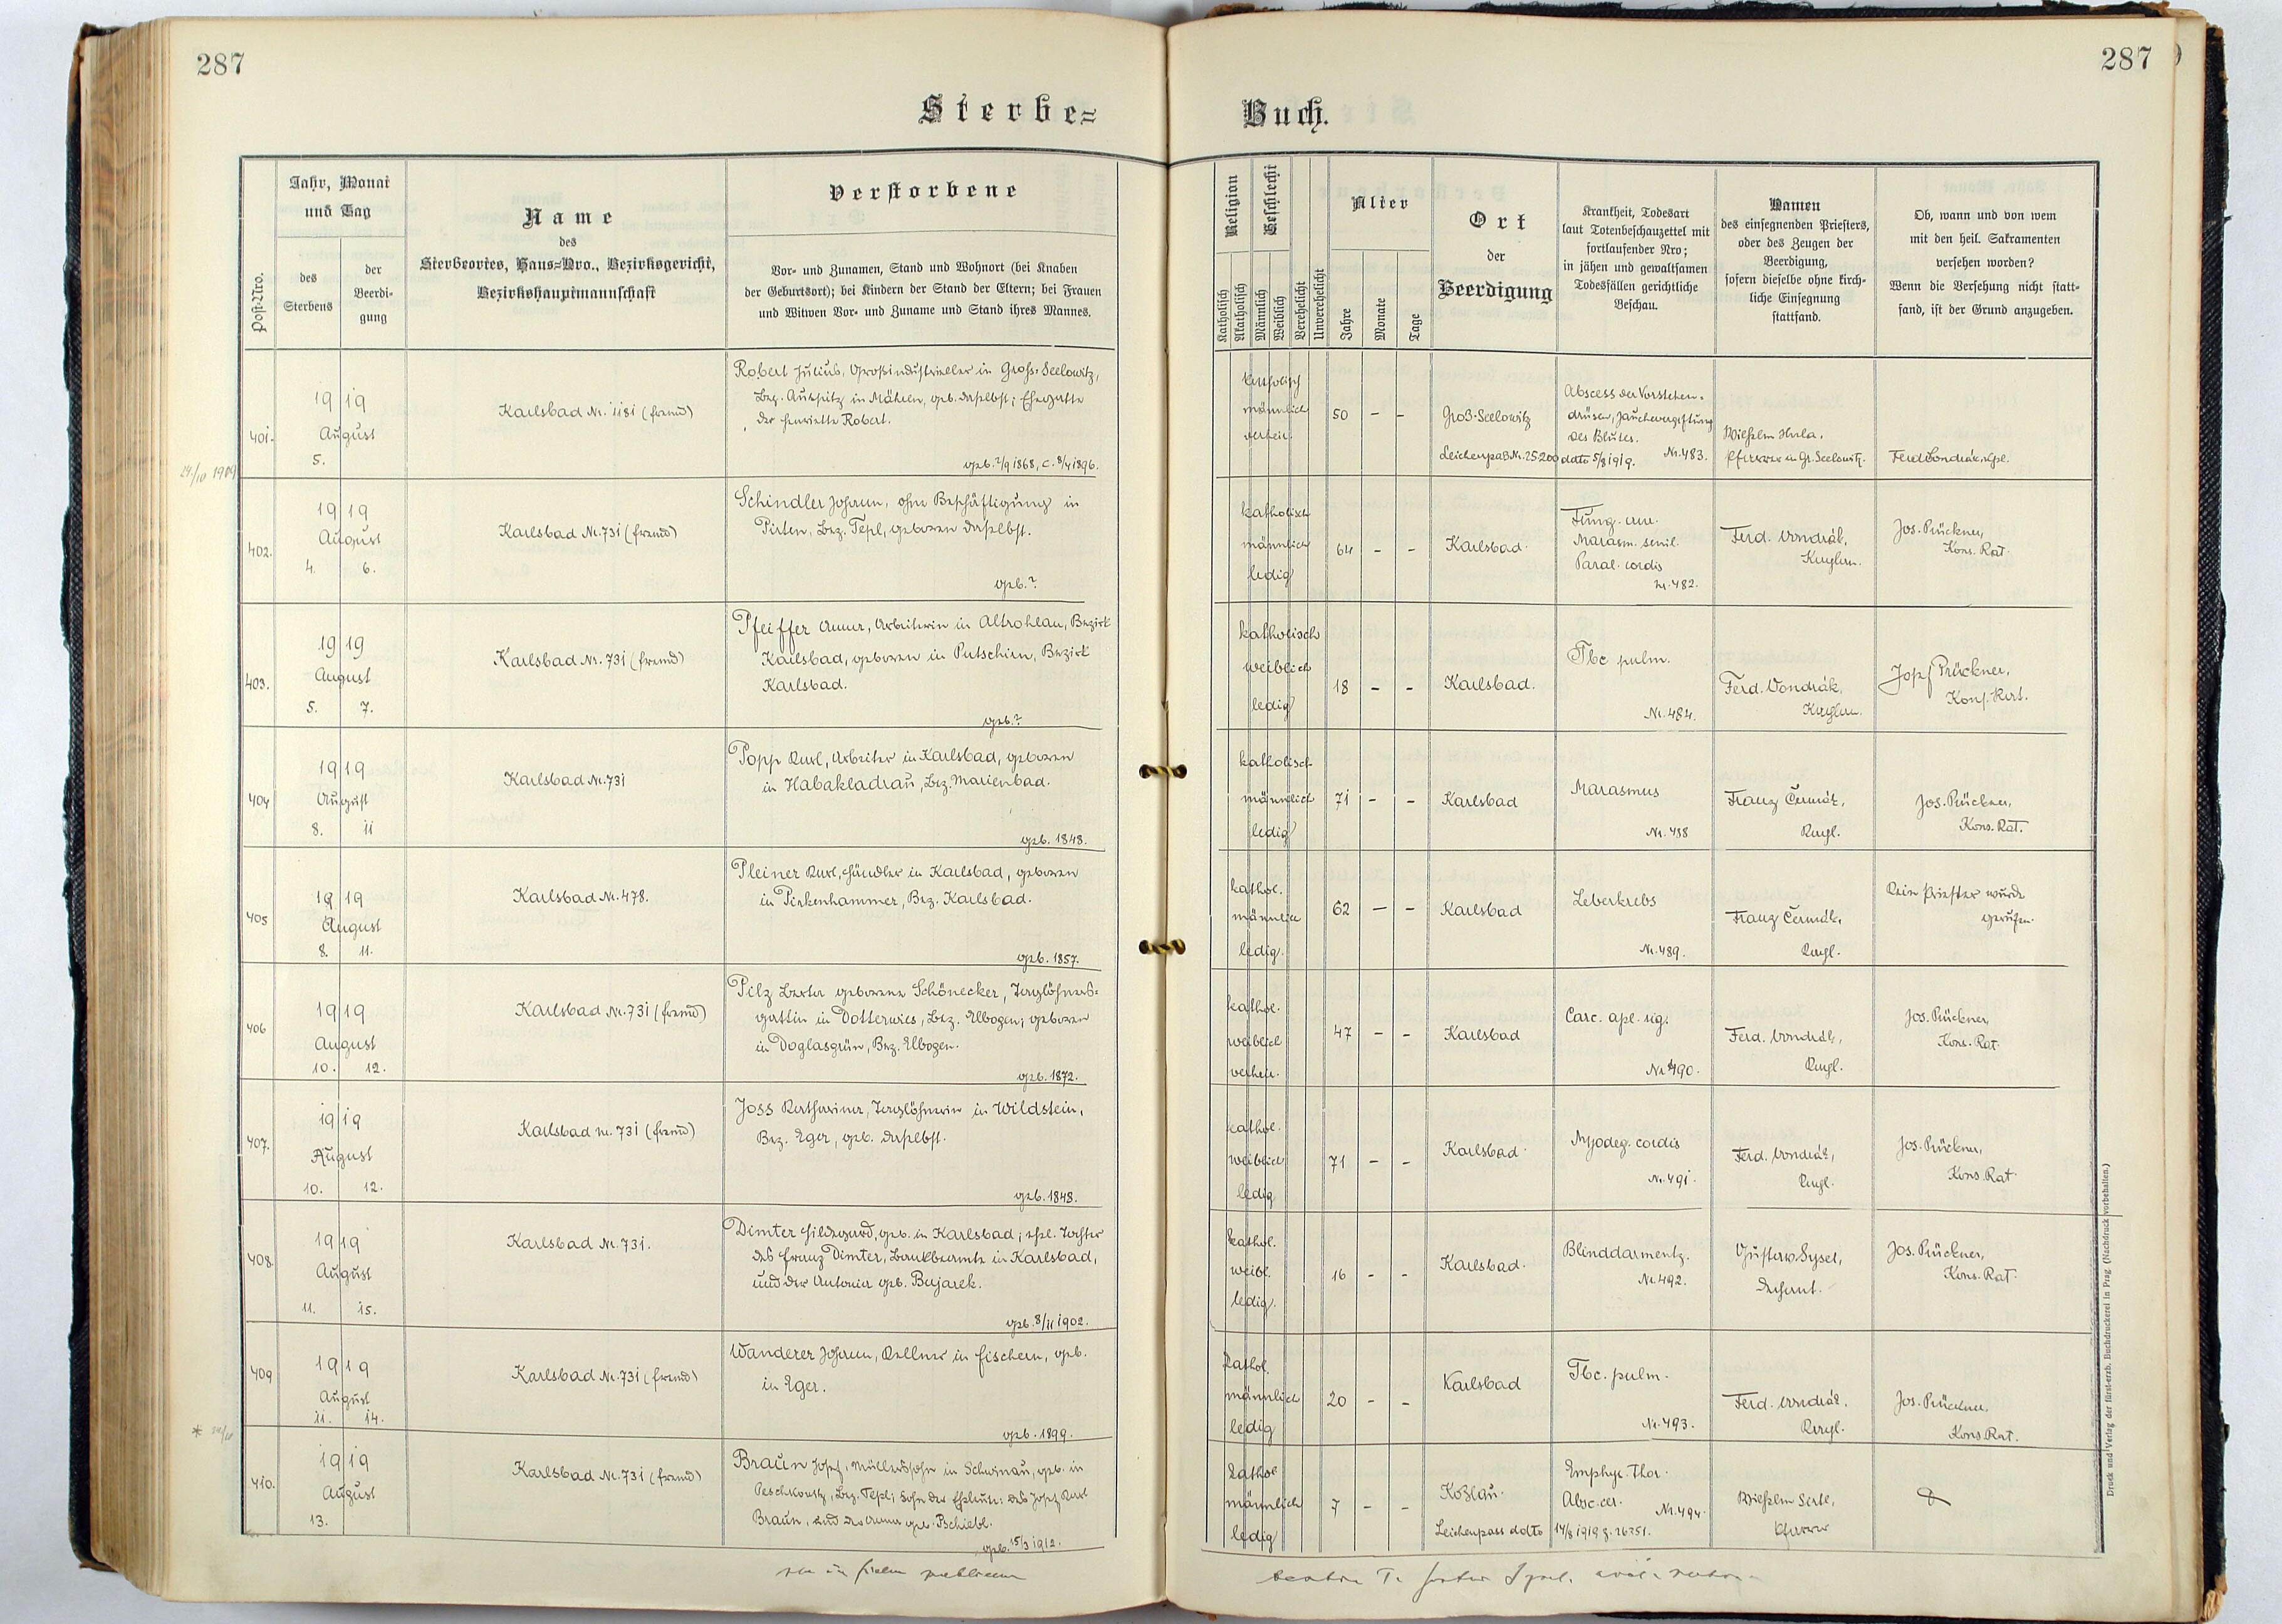 287
287
Sterbe=
Buch.
Post-Nro.
Jahr, Monat
und Tag
des
Sterbens
der
Beerdi-
gung
Name
des
Sterbeortes, Haus=Nro., Bezirksgericht,
Bezirkshauptmannschaft
Verstorbene
Vor- und Zunamen, Stand und Wohnort (bei Knaben
der Geburtsort); bei Kindern der Stand der Eltern; bei Frauen
und Witwen Vor- und Zuname und Stand ihres Mannes.
Religion
Geschlecht
Katholisch
Akatholisch
Männlich
Weiblich
Verehelicht
Unverehelicht
Alter
Jahre
Monate
Tage
Ort
der
Beerdigung
Krankheit, Todesart
laut Totenbeschauzettel mit
fortlaufender Nro;
in jähen und gewaltsamen
Todesfällen gerichtliche
Beschau.
Namen
des einsegnenden Priesters,
oder des Zeugen der
Beerdigung,
sofern dieselbe ohne kirch-
liche Einsegnung
stattfand.
Ob, wann und von wem
mit den heil. Sakramenten
versehen worden?
Wenn die Versehung nicht statt-
fand, ist der Grund anzugeben.
401.
1919
August
5.
Karlsbad Nr. 1181 (fremd)
Robert Julius, Großindustrieller in Gross-Seelowitz,
Bez. Auspitz in Mähren, geb. daselbst; Ehegatte
der Henriette Robert.
geb. 2/9 1868, c. 8/4 1896.
katholisch
männlich
verheir.
50 - -
Groß-Seelowitz
Leichenpaß Nr. 25200 dato 5/8 1919.
Abscess der Vorsteher-
drüsen, Jauchevergiftung
des Blutes.
Nr. 483.
Wilhelm Hula,
Pfarrer in Gr. Seelowitz.
Ferd. Vondrák, Kpl.
402.
1919
August
4. 6.
Karlsbad Nr. 731 (fremd)
Schindler Johann, ohne Beschäftigung in
Pirten, Bez. Tepl, geboren daselbst.
geb. ?
katholisch
männlich
ledig
64 - -
Karlsbad.
Marasm. senil.
Paral. cordis
Nr. 482.
Ferd. Vondrák,
Kaplan.
Jos. Prückner,
Kons. Rat.
403.
1919
August
5. 7.
Karlsbad Nr. 731 (fremd)
Pfeiffer Anna, Arbeiterin in Altrohlau, Bezirk
Karlsbad, geboren in Putschirn, Bezirk
Karlsbad.
geb. ?
katholisch
weiblich
ledig
18 - -
Karlsbad.
Tbc pulm.
Nr. 484.
Ferd. Vondrák,
Kaplan.
Josef Prückner,
Kons. Rat.
404
1919
August
8. 11
Karlsbad Nr. 731
Popp Karl, Arbeiter in Karlsbad, geboren
in Habakladrau, Bez. Marienbad.
geb. 1848.
katholisch
männlich
ledig
71 - -
Karlsbad
Marasmus
Nr. 488
Franz Čermák,
Kapl.
Jos. Prückner,
Kons. Rat.
405
1919
August
8. 11.
Karlsbad Nr. 478.
Pleiner Karl, Händler in Karlsbad, geboren
in Pirkenhammer, Bez. Karlsbad.
geb. 1857.
kathol.
männlich
ledig.
62 - -
Karlsbad
Leberkrebs
Nr. 489.
Franz Čermák,
Kapl.
Kein Priester wurde
gerufen.
406
1919
August
10. 12.
Karlsbad Nr. 731 (fremd)
Pilz Berta geborene Schönecker, Taglöhners-
gattin in Dotterwies, Bez. Elbogen, geboren
in Doglasgrün, Bez. Elbogen.
geb. 1872.
kathol.
weiblich
verheir.
47 - -
Karlsbad
Nr. 490.
Ferd. Vondrák,
Kapl.
Jos. Prückner,
Kons. Rat.
407.
1919
August
10. 12.
Karlsbad Nr. 731 (fremd)
Joss Katharina, Taglöhnerin in Wildstein,
Bez. Eger, geb. daselbst.
geb. 1848.
kathol.
weiblich
ledig
71 - -
Karlsbad
Myodeg. cordis
Nr. 491.
Ferd. Vondrák,
Kapl.
Jos. Prückner,
Kons. Rat.
408.
1919
August
11. 15.
Karlsbad Nr. 731.
Dimter Hildegard, geb. in Karlsbad; ehel. Tochter
des Franz Dimter, Bankbeamte in Karlsbad,
und der Antonia geb. Bujarek.
geb. 8/11 1902.
kathol.
weibl.
ledig.
16 - -
Karlsbad.
Blinddarmentz.
Nr. 492.
Gustav Sysel,
Dechant.
Jos. Prückner,
Kons. Rat.
409
1919
August
11. 14.
Karlsbad Nr. 731 (fremd)
Wanderer Johann, Kellner in Fischern, geb.
in Eger.
geb. 1899.
kathol.
männlich
ledig
20 - -
Karlsbad
Tbc. pulm.
Nr. 493.
Ferd. Vondrák,
Kapl.
Jos. Prückner,
Kons. Rat.
410.
1919
August
13.
Karlsbad Nr. 731 (fremd)
Braun Josef, Müllerssohn in Schwinau, geb. in
Peschkowitz, Bez. Tepl; Sohn der Eheleute: des Josef Karl
Braun, und der Anna geb. Pschiebl.
geb. 15/3 1912.
kathol
männlich
ledig
7 - -
Kozlau.
Leichenpass ddto 14/8 1919 Z. 26251.
Emphys. Thor.
Absc. cer.
Nr. 494.
Pfarrer
Druck und Verlag der fürst-erzb. Buchdruckerei in Prag. (Nachdruck vorbehalten.)